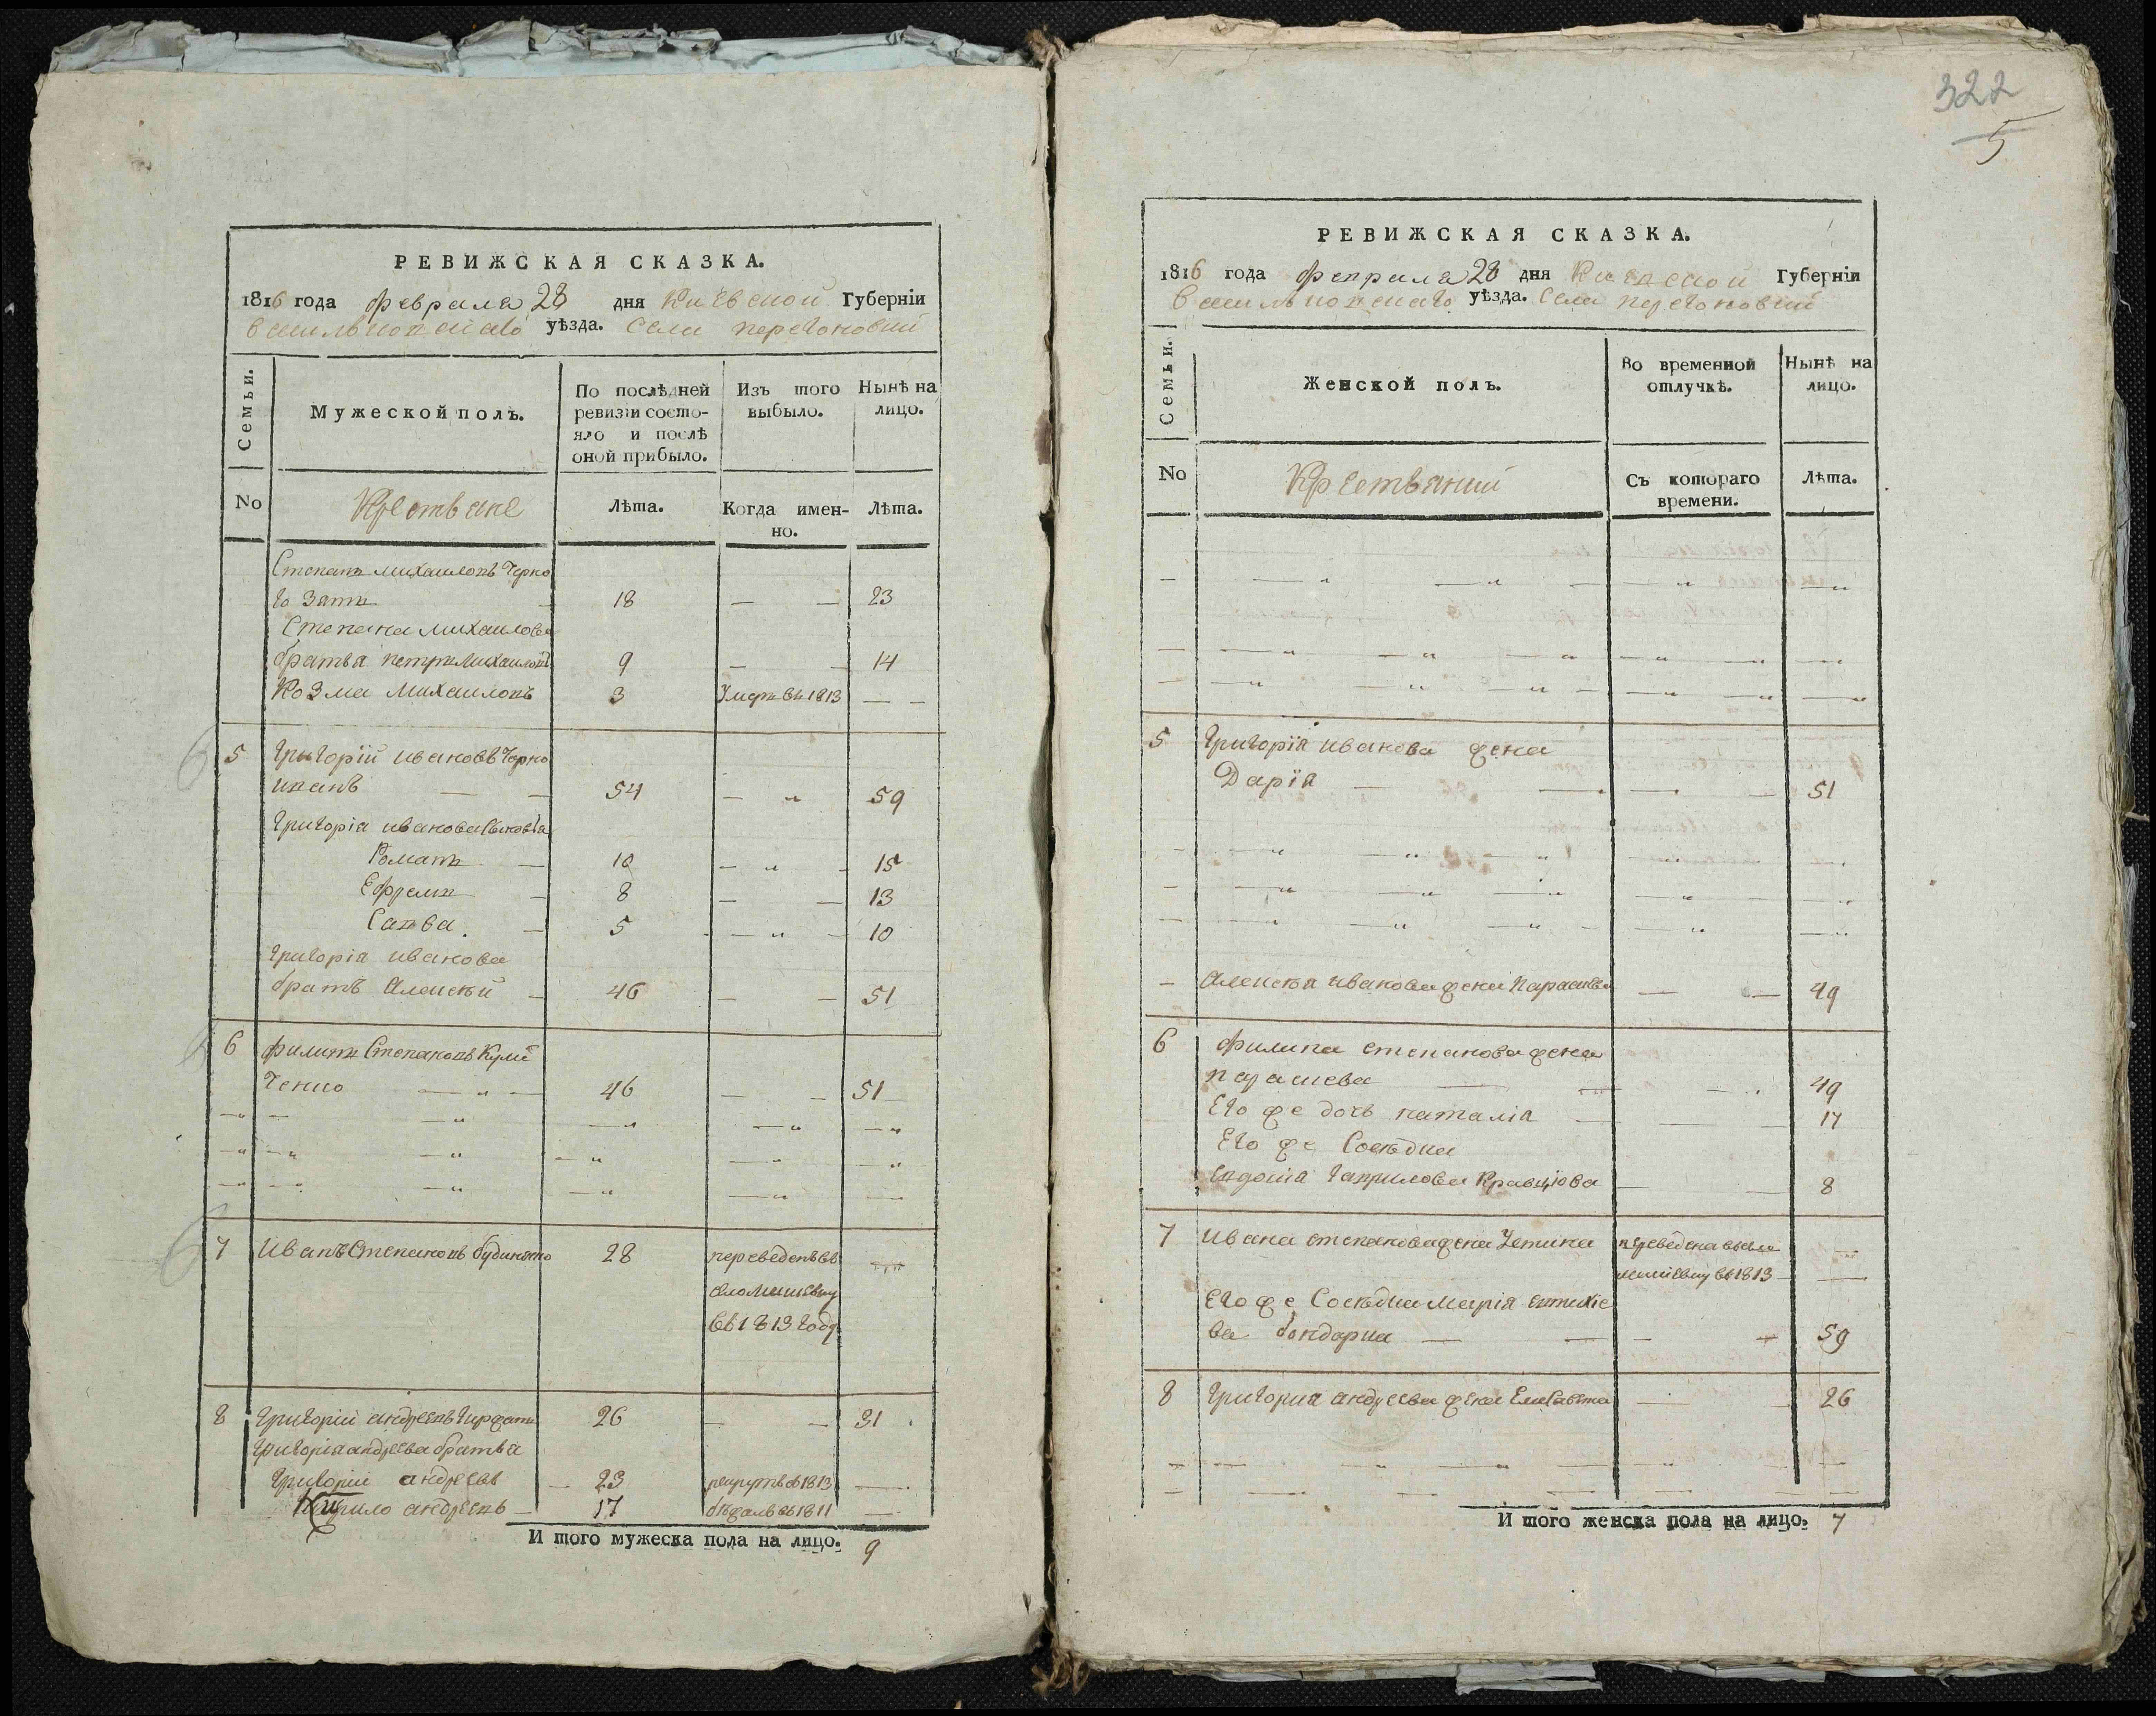 РЕВИЖСКАЯ СКАЗКА.
1816 года февраля 28 дня Киевской Губернїи
васильковскаго уѣзда. Села переґоновки
Семьи.
Мужеской полъ.
По послѣдней ревизїи состояло и послѣ оной прибыло.
Изъ того выбыло.
Нынѣ на лицо.
No
Крестьяне
Лѣта.
Когда именно.
Лѣта.
Степанъ михаиловъ Черно
го Зять — 18 — — 23
Степана михаилова
братья петръ михаиловъ 9 — — 14
Козма михаиловъ 3 Умеръ въ 1813 — —
5 григорїй ивановъ Черно
иванъ — — 54 — „ 59
григорїа иванова сыновья
Романъ — 10 — „ — 15
Ефремъ — 8 — — 13
Савва. — 5 — „ — 10
григорїа иванова
братъ Алексѣй — 46 — — 51
6 филипъ Степановъ Кули
ченко — „ — 46 — — 51
7 Иванъ Степановъ 28 переведенъ въ
въ 1813 году
8 григорїй андреевъ 26 — — 31
григорїа андреева братья
григорїй андреевъ — 23 рекрутъ в 1813 —
андреевъ — 17 бѣжалъ въ 1811 —
И того мужеска пола на лицо. 9
322
5
РЕВИЖСКАЯ СКАЗКА.
1816 года февраля 28 дня Киевской Губернїи
васильковскаго уѣзда. Села переґоновки
Семьи.
Женской полъ.
Во временной отлучкѣ.
Нынѣ на лицо.
No
Крестьянки
Съ котораго времени.
Лѣта.
5 григорїа иванова жена
Дарїа — — — — 51
— Алексѣя иванова жена Параскева — — 49
6 филипа степанова жена
параскева — — — 49
Его же дочь наталїа — — — 17
Его же Сосѣдка
Евдокїа гаврилова Кравцова — — 8
7 Ивана степанова жена Устина переведена
въ 1813 —
Его же Сосѣдка марїя евтихїе
ва бондарка — — — — 59
8 григориа андреева жена Елисавета — — 26
И того женска пола на лицо. 7